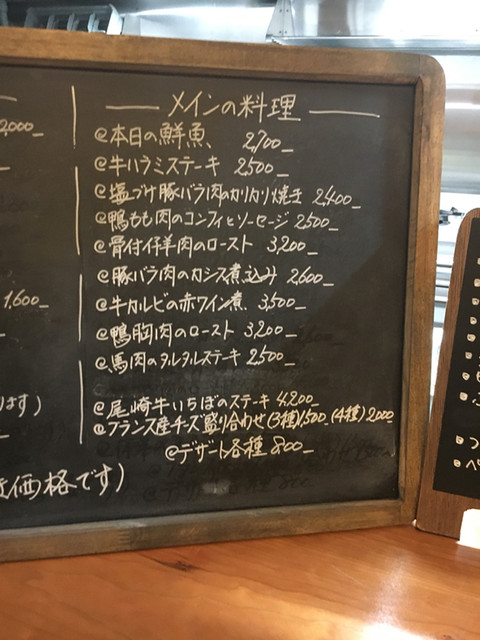 メインの料理
2,000_
@本日の鮮魚、 2,700_
@牛ハラミステーキ 2,500_
@塩づけ豚バラ肉のカリカリ焼き 2,400_
@鴨もも肉のコンフィとソーセージ 2,500_
@骨付仔羊肉のロースト 3,200_
@豚バラ肉のカシス煮込み 2,600_
1,600_
@牛カルビの赤ワイン煮 3,500_
@鴨胸肉のロースト 3,200_
@馬肉のタルタルステキ 2,500_
@尾崎牛いちぼのステーキ 4,200_
ます)
@フランス産チーズ盛り合わせ(3種)1,500_(4種)2,000_
@デザート各種 800_
価格です)